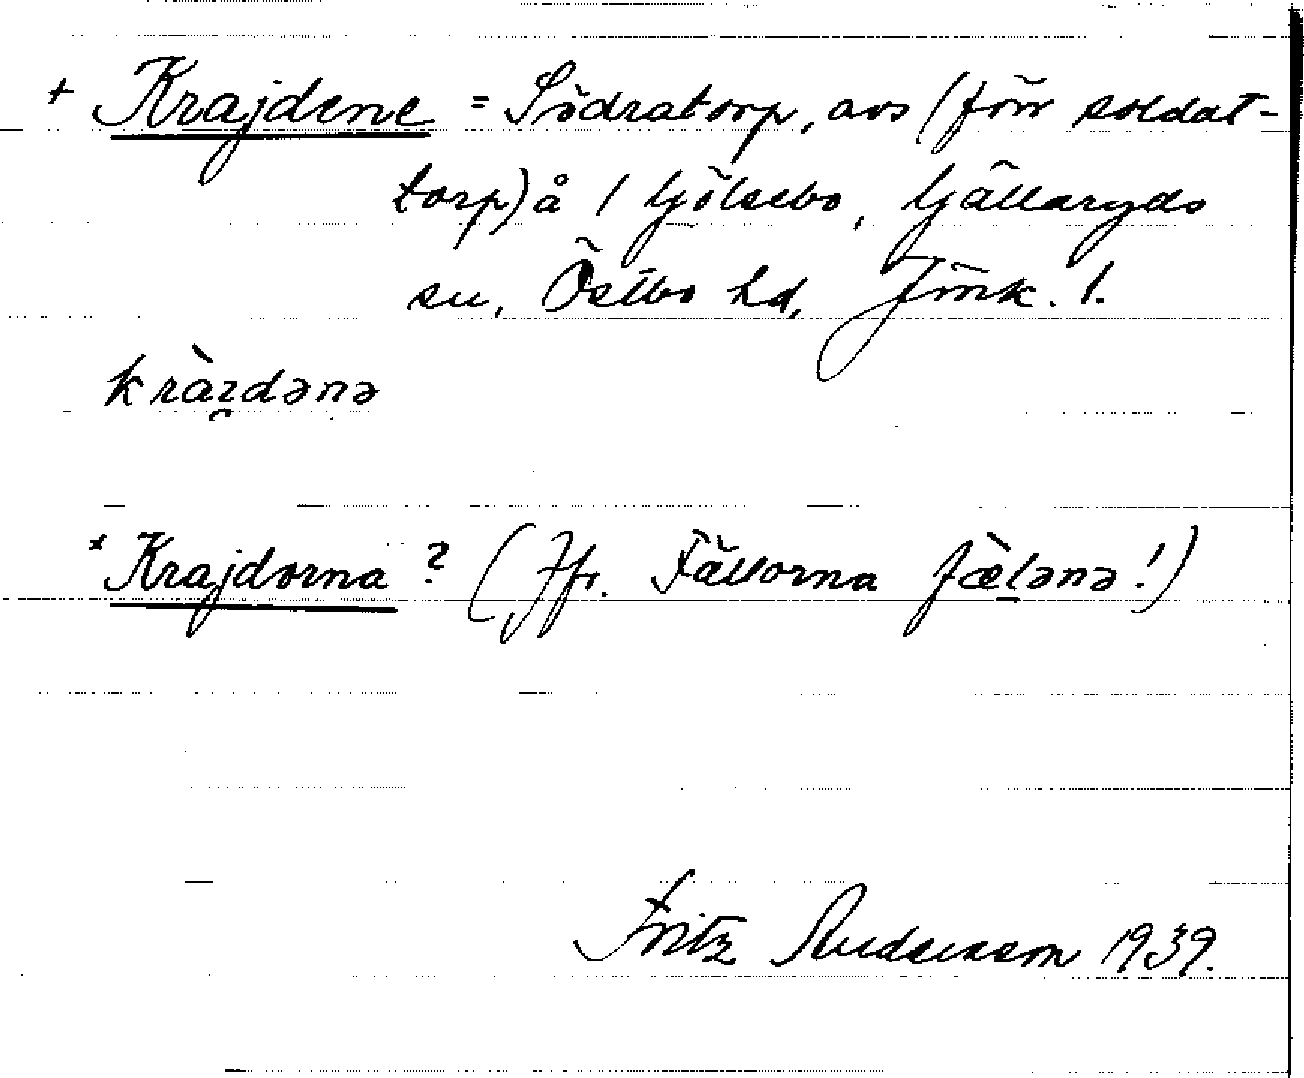 + Krajdene = Södratorp, avs (förr soldat-
torp) å 1 Gölsebo, Gällaryds
sn, Östbo hd, Jönk. l.
kràɪdənə
*Krajdorna ? (Jfr. Fällorna fæ̀lənə!)
Fritz Andersson 1939.